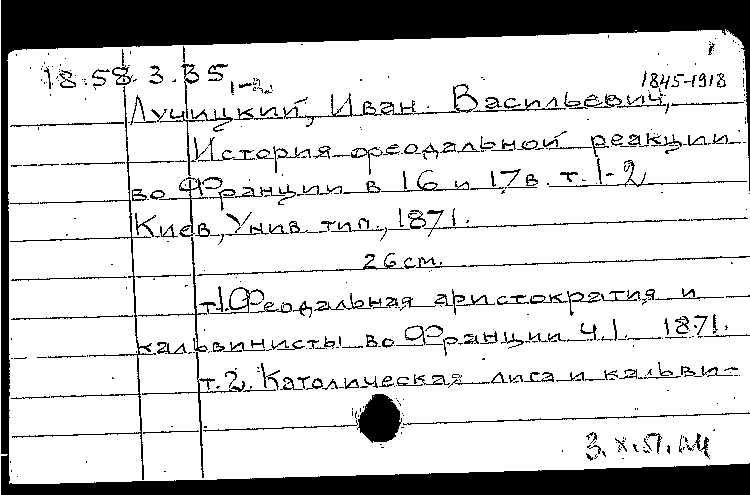 18.58.3.35 1-2
1845-1918
Лучицкий, Иван Васильевич,
История феодальной реакции
во Франции в 16 и 17 в. т. 1-2
Киев, Унив. тип., 1871.
26 см.
т.1. Феодальная аристократия и
кальвинисты во Франции ч.1. 1871.
т.2. Католическая лига и кальви-
3.X.51.